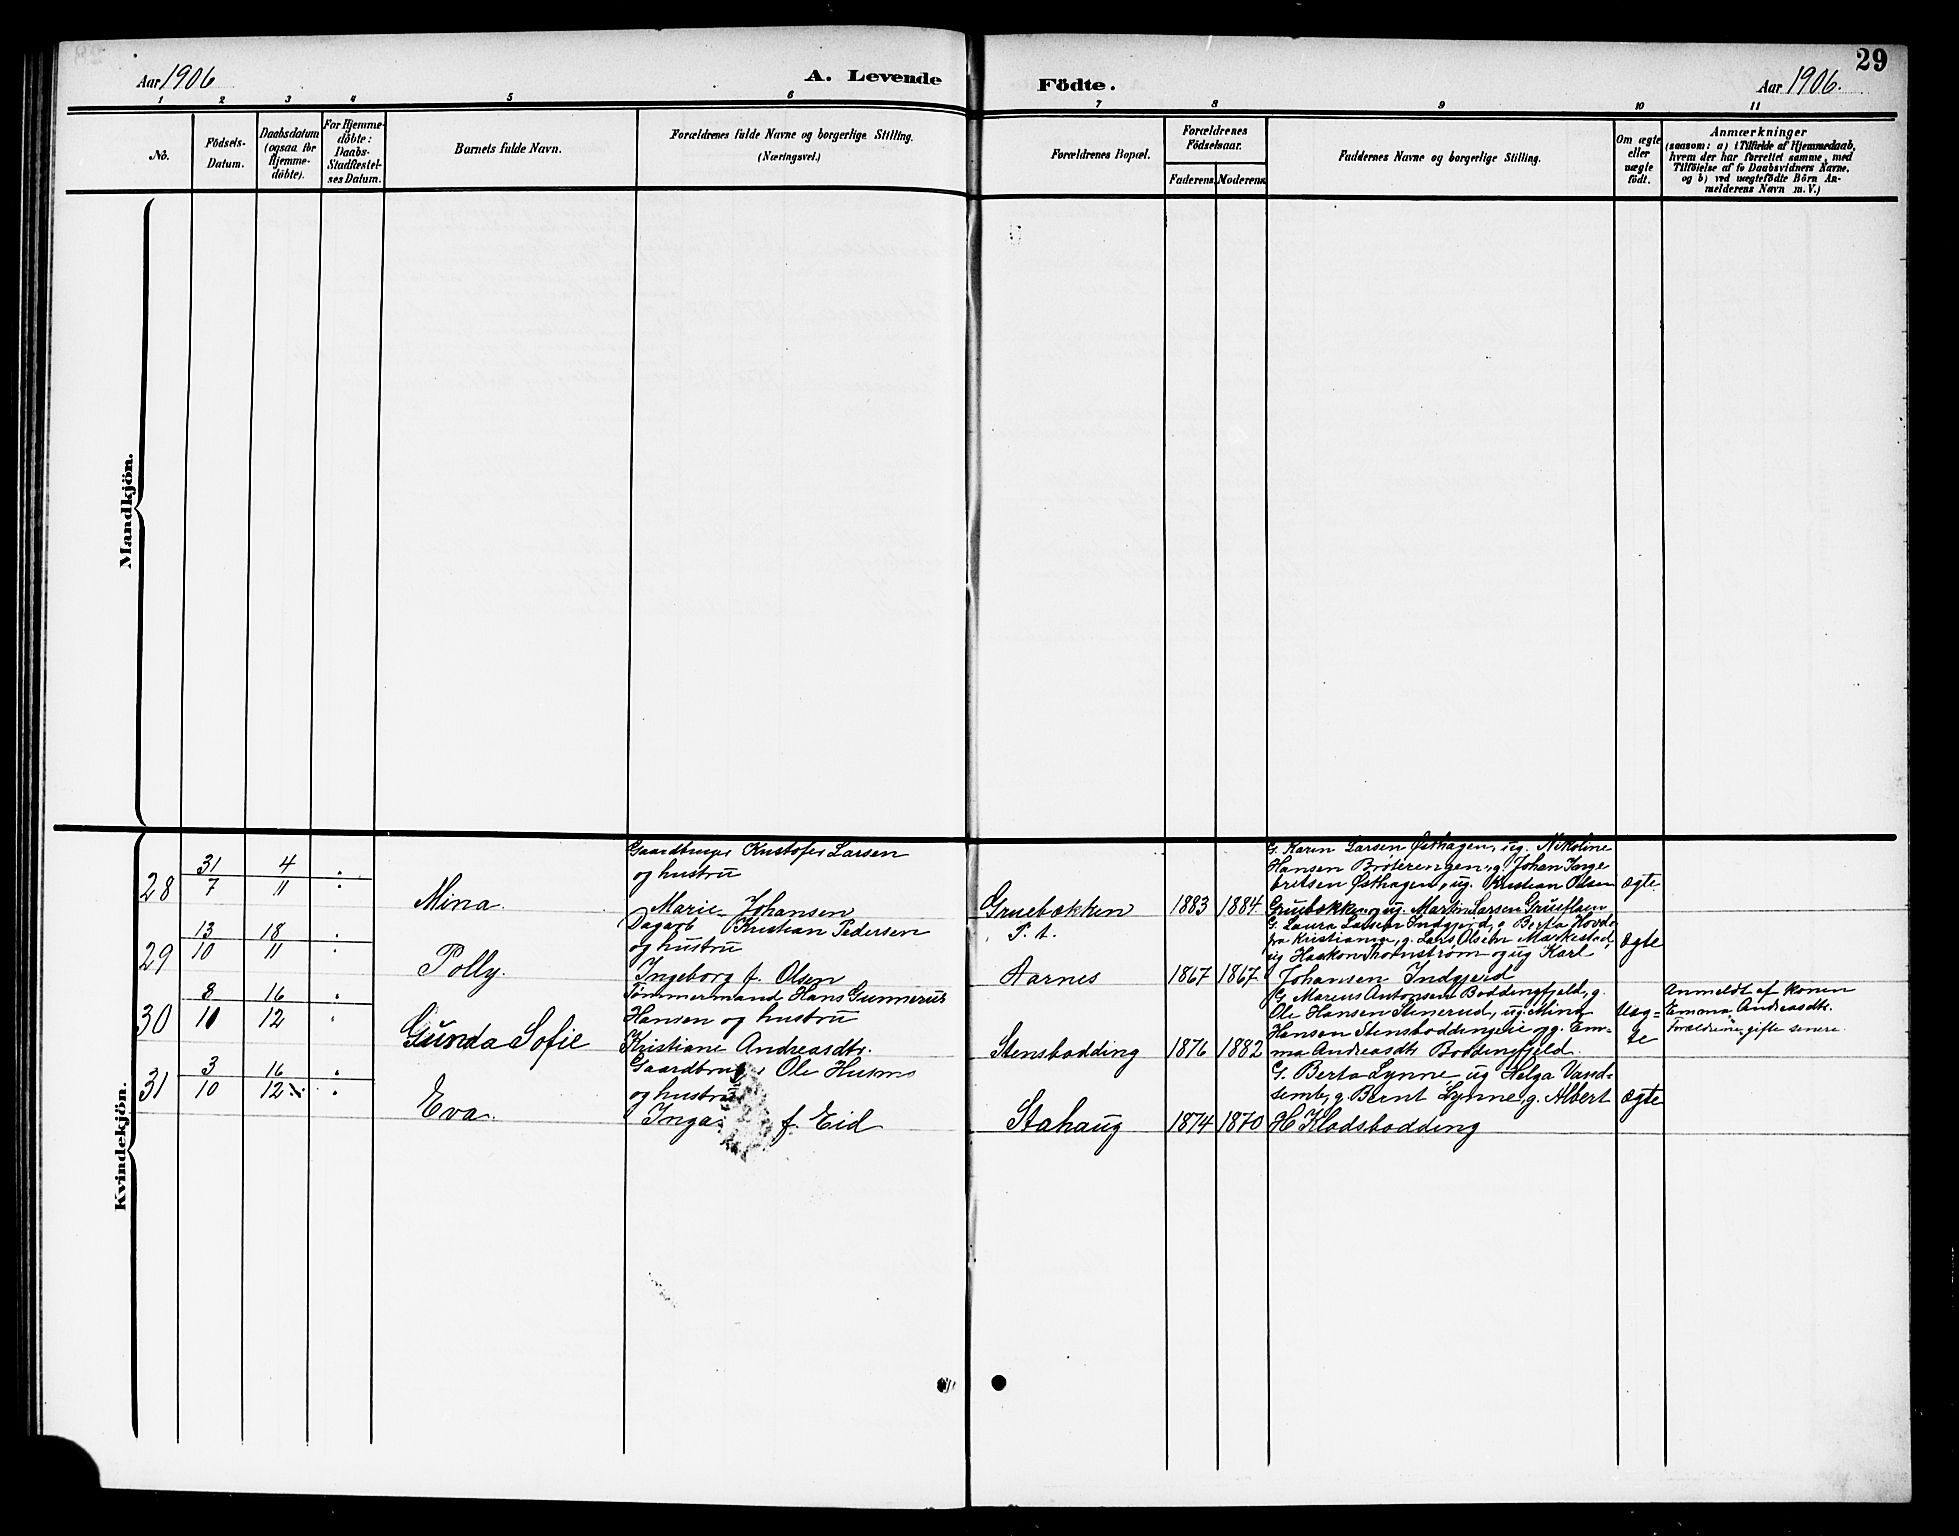 29
Aar 1906
A. Levende
Födte.
Aar 1906.
1 2 3 4 5 6 7 8 9 10 11
No.
Födsels-
Datum.
Daabsdatum
(ogsaa for
Hjemme-
döbte).
For Hjemme-
döbte:
Daabs-
Stadfæstel-
ses Datum.
Barnets fulde Navn.
Forældrenes fulde Navne og borgerlige Stilling.
(Næringsvei.)
Forældrenes Bopæl.
Forældrenes
Födselsaar.
Faderens. Moderens.
Faddernes Navne og borgerlige Stilling.
Om ægte
eller
uægte
födt.
Anmærkninger
(saasom: a) i Tilfælde af Hjemmedaab,
hvem der har forrettet samme, med
Tilföielse af to Daabsvidners Navne,
og b) ved uægtefödte Börn An-
melderens Navn m. V.)
Mandkjön.
Kvindekjön.
28
31
7
4
11
Mina
Gaardbruger Kristofer Larsen
og hustru
Marie Johansen
Gruebækken
1883 1884
G. Karen Larsen Østhagen, ug. Nikoline
Hansen Bröterengen, g. Johan Inge
bretsen Østhagen, ug. Kristian Olsen
Gruebækken og ug. Martin Larsen
Ægte
29
13
10
18
11
Polly.
Dagarb Kristian Pedersen
og hustru
Ingeborg f. Olsen
P. t.
Aarnes
1867 1867
G. Laura Larsen Indgjerd, g Berta Hovde
fra Kristiania, g. Lars Olsen Markestad,
ug Haakon Thornstrøm og ug Karl
Johansen Indgjerd
Ægte
30
8
11
16
12
Gunda Sofie
Tömmermand Hans Gunnerus
Hansen og hustru
Kristiane Andreasdtr.
Stensbodding
1876 1882
G. Marius Antonsen Boddingfjeld, g.
Ole Hansen Stenerud, ug. Mina
Hansen Stensboddingeie og g. Em-
ma Andreasdtr Boddingfjeld
Uæg-
te
Anmeldt af konen
Emma Andreasdtr.
Forældrene gifte senere.
31
3
10
16
12
Eva.
Gaardbruger Ole Husmo
og hustru
Inga f. Eid
Stahaug
1874 1870
G. Berta Lynne, ug Helga Vand-
semb, g Bernt Lynne, g. Albert
H Klodsbodding
Ægte